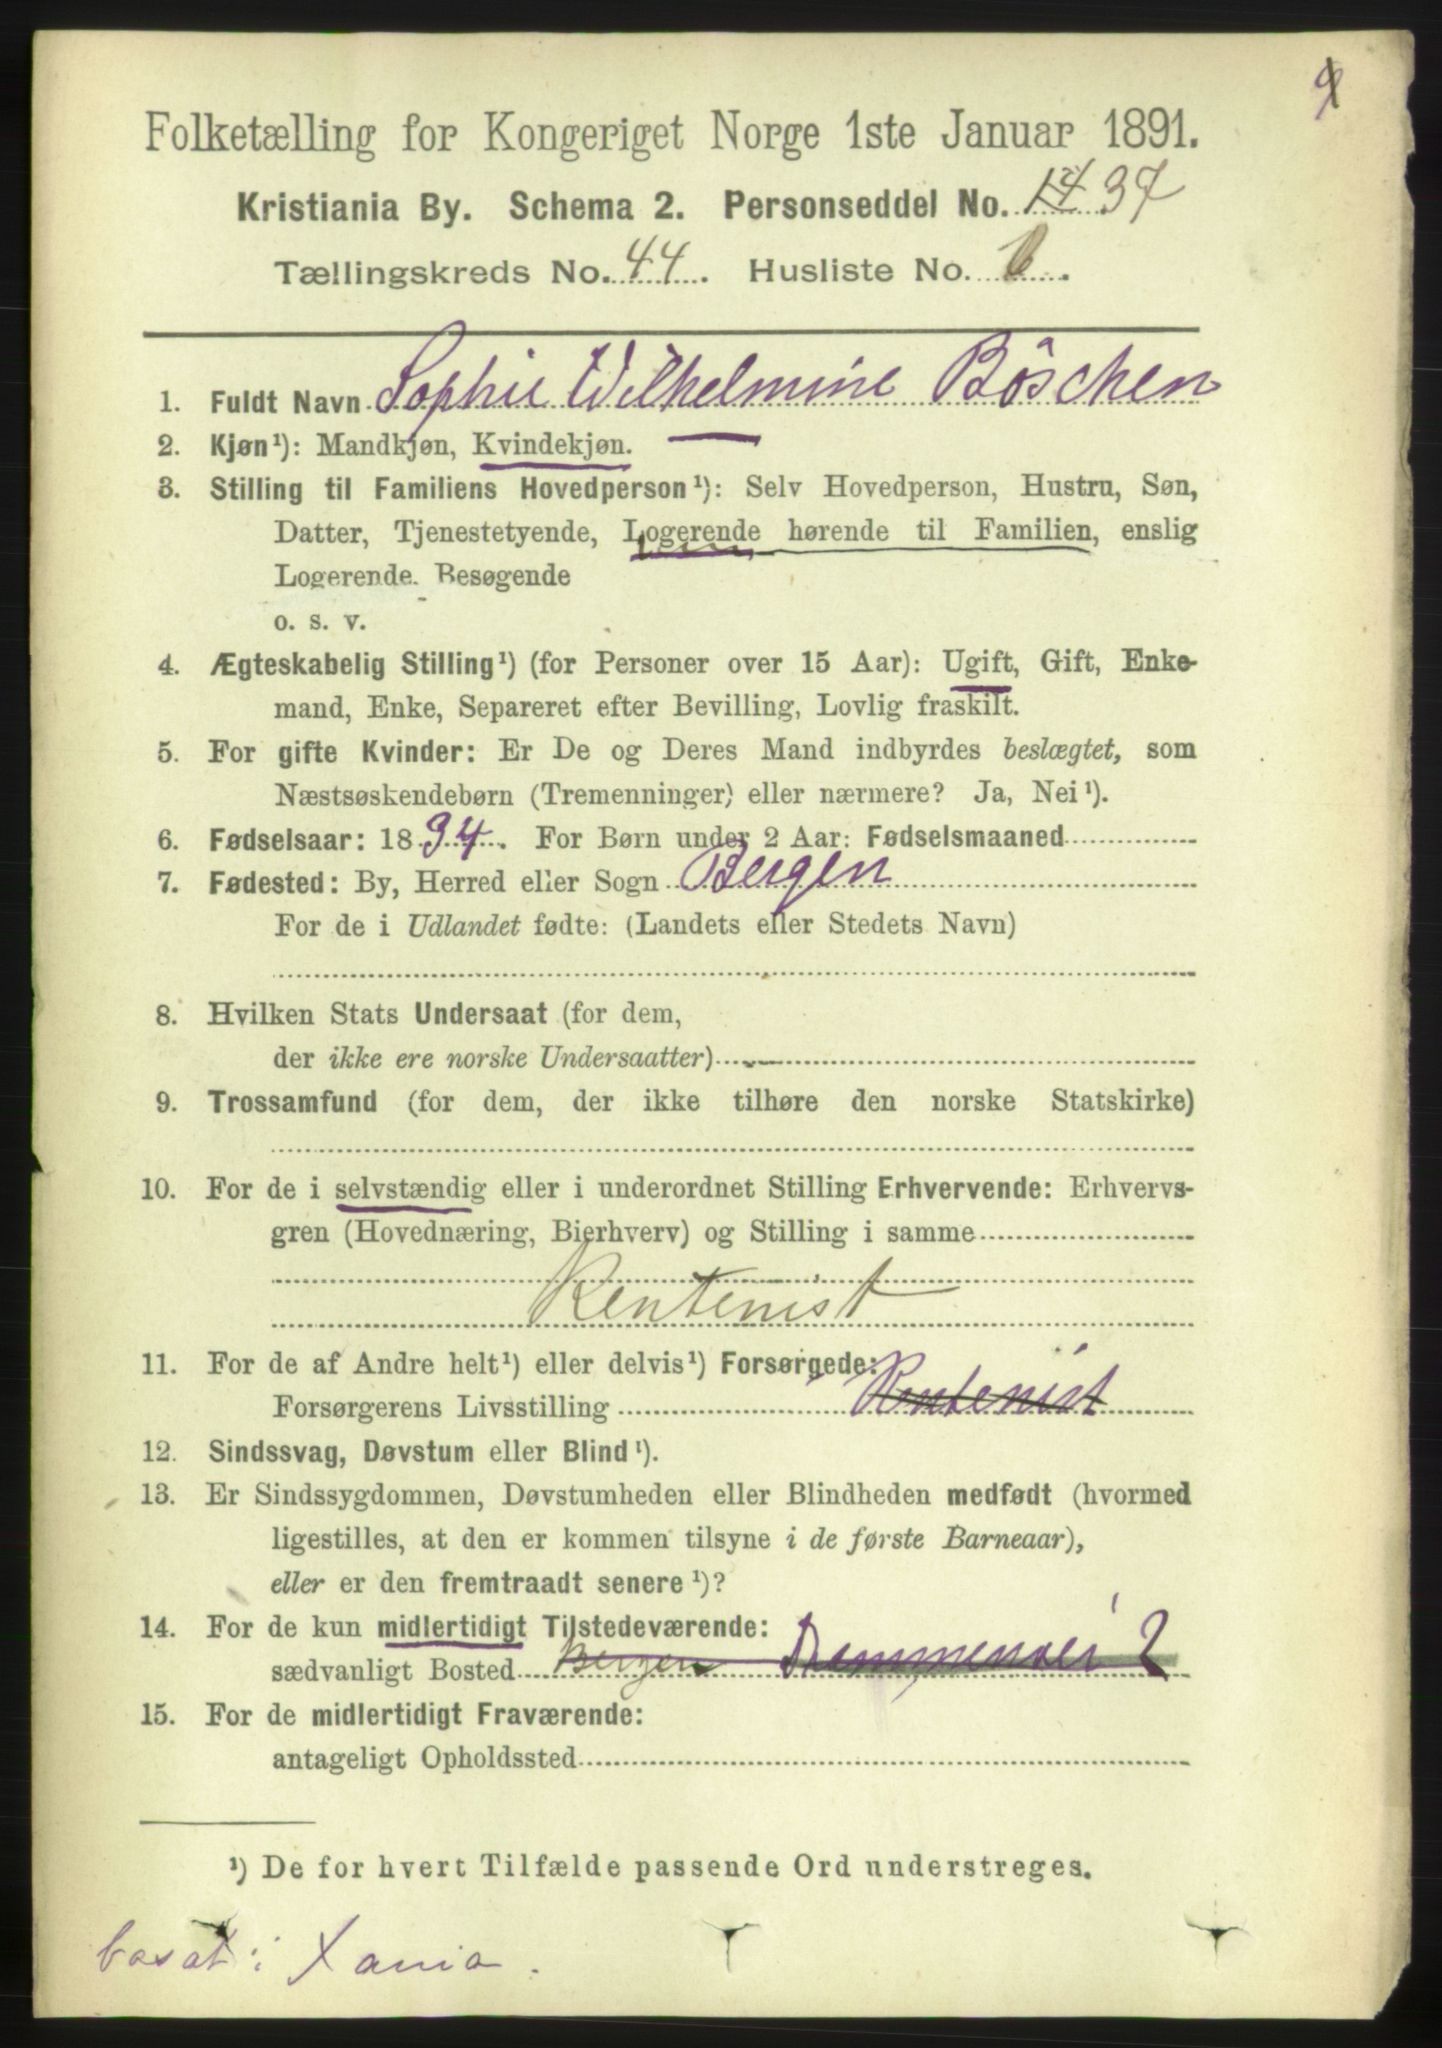 Folketælling for Kongeriget Norge 1ste Januar 1891.
Kristiania By. Schema 2. Personseddel No. 14 37
Tællingskreds No. 44. Husliste No. 6.
1. Fuldt Navn Sophie Wilhelmine Böschen
2. Kjøn¹): Mandkjøn, Kvindekjøn.
3. Stilling til Familiens Hovedperson¹): Selv Hovedperson, Hustru, Søn,
Datter, Tjenestetyende, Logerende hørende til Familien, enslig
Logerende. Besøgende
o. s. v.
4. Ægteskabelig Stilling¹) (for Personer over 15 Aar): Ugift, Gift, Enke-
mand, Enke, Separeret efter Bevilling, Lovlig fraskilt.
5. For gifte Kvinder: Er De og Deres Mand indbyrdes beslægtet, som
Næstsøskendebørn (Tremenninger) eller nærmere? Ja, Nei¹).
6. Fødselsaar: 1834. For Børn under 2 Aar: Fødselsmaaned
7. Fødested: By, Herred eller Sogn Bergen
For de i Udlandet fødte: (Landets eller Stedets Navn)
8. Hvilken Stats Undersaat (for dem,
der ikke ere norske Undersaatter)
9. Trossamfund (for dem, der ikke tilhøre den norske Statskirke)
10. For de i selvstændig eller i underordnet Stilling Erhvervende: Erhvervs-
gren (Hovednæring, Bierhverv) og Stilling i samme
Rentenist
11. For de af Andre helt¹) eller delvis¹) Forsørgede:
Forsørgerens Livsstilling Rentenist
12. Sindssvag, Døvstum eller Blind¹).
13. Er Sindssygdommen, Døvstumheden eller Blindheden medfødt (hvormed
ligestilles, at den er kommen tilsyne i de første Barneaar),
eller er den fremtraadt senere¹)?
14. For de kun midlertidigt Tilstedeværende:
sædvanligt Bosted Bergen Drammensvei 2
15. For de midlertidigt Fraværende:
antageligt Opholdssted
¹) De for hvert Tilfælde passende Ord understreges.
bosat i Xania.